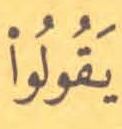 يَقُولُوا۟